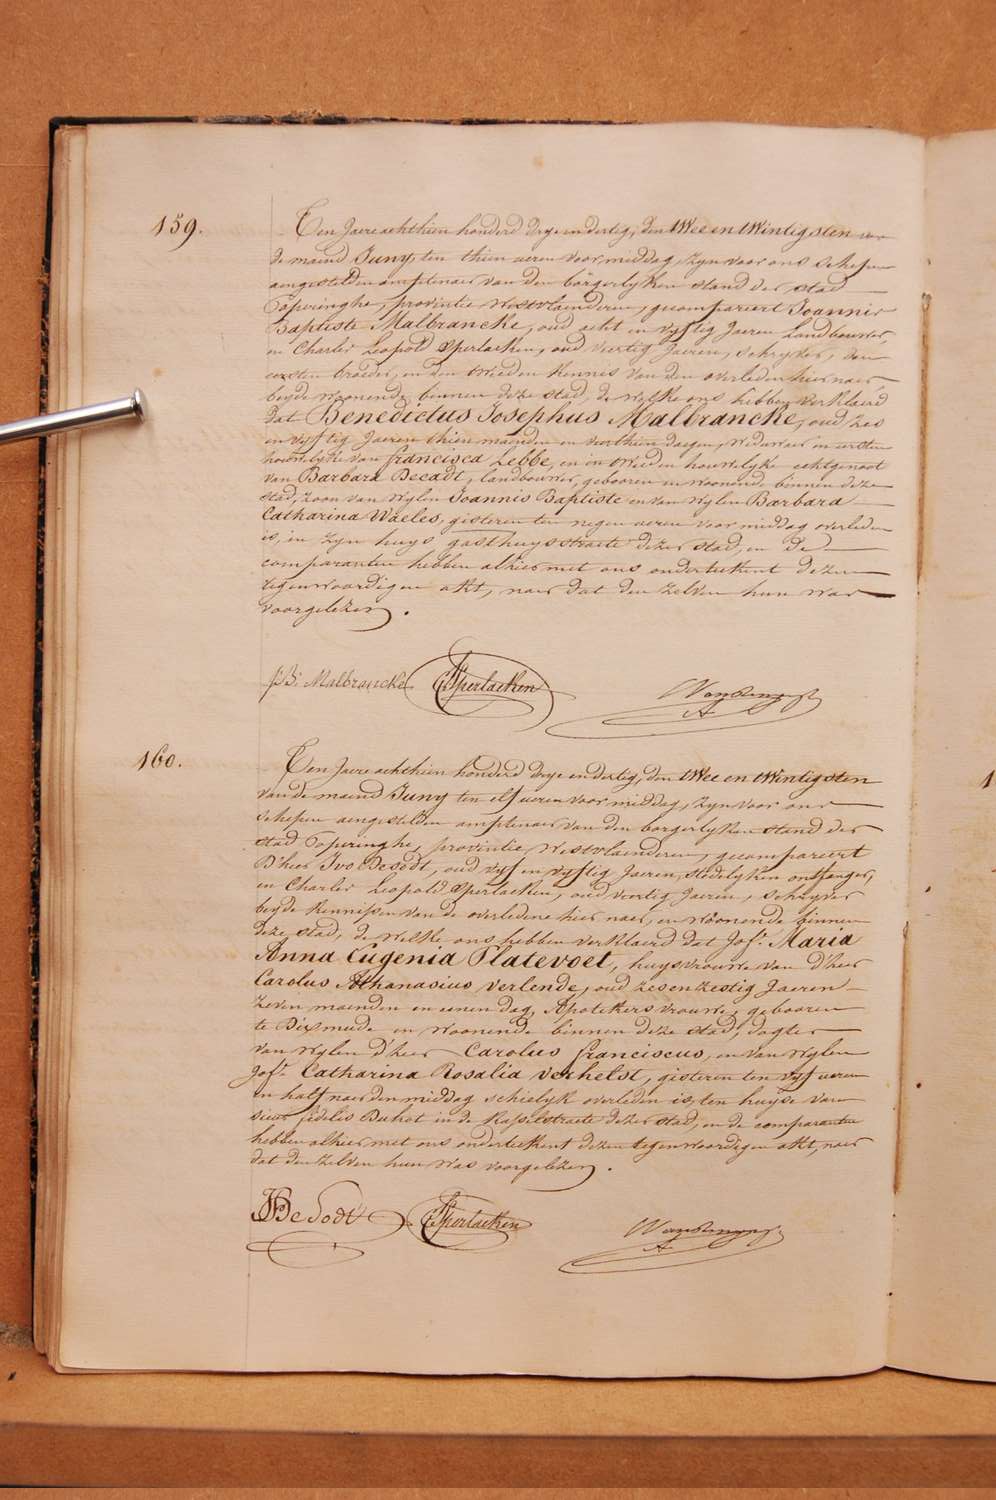 159.
Ten Jaere achthien honderd drye en dertig, den twee en twintigsten van
de maend Juny, ten thien ueren voor middag, zyn voor ons schepen
aengestelden amptenaer van den borgerlyken stand der stad
Poperinghe, provintie westvlaenderen, gecompareert Joannes
Baptiste Malbrancke, oud acht en vyftig Jaeren Landbouwer,
en Charles Leopold Sperlaeken, oud veertig Jaeren, schryver, den
eersten broeder, en den tweeden kennis van den overleden hier naer,
beyde woonende binnen deze stad, de welke ons hebben verklaerd
dat Benedictus Josephus Malbrancke, oud zes
en vyftig Jaeren thien maenden en veerthien daegen, weduwaer in eersten
houwelyke van francisca Lebbe, en in tweeden houwelyke echtgenoot
van Barbara Decadt, landbouwer, gebooren en woonende binnen deze
stad, zoon van wylen Joannis Baptiste en van wylen Barbara
Catharina Waeles, gisteren ten negen ueren voor middag overleden
is, in zyn huys gasthuysstraete dezer stad, en de
comparanten hebben alhier met ons onderteekent dezen
tegenwoordigen akt, naer dat den zelven hun was
voorgelezen.
J B. Malbrancke Sperlaeken
160.
Ten Jaere achthien honderd drye en dertig, den twee en twintigsten
van de maend Juny ten elf ueren voor middag, zyn voor ons
schepen aengestelden amptenaer van den borgerlyken stand der
stad Poperinghe, provintie westvlaenderen, gecompareert
D'heer Ivo De Sodt, oud vyf en vyftig Jaeren, stedelyken ontfanger,
en Charles Leopold Sperlaeken, oud veertig Jaeren, schryver
beyde kennissen van de overledene hier naer, en woonende binnen
deze stad, de welke ons hebben verklaerd dat Jof. Maria
Anna Eugenia Platevoet, huysvrouwe van D'heer
Carolus Athanasius verlende, oud zesenzestig Jaeren
zeven maenden en eenen dag, Apotekers vrouwe, gebooren
te Dixmude en woonende binnen deze stad, dogter
van wylen d'heer Carolus franciscus, en van wylen
Jof. Catharina Rosalia verhelst, gisteren ten vyf ueren
en half naer den middag schielyk overleden is, ten huyse van
sieur fidelis Buhot in de kasselstraete dezer stad, en de comparanten
hebben alhier met ons onderteekent dezen tegenwoordigen akt, naer
dat den zelven hun was voorgelezen.
De Sodt Sperlaeken